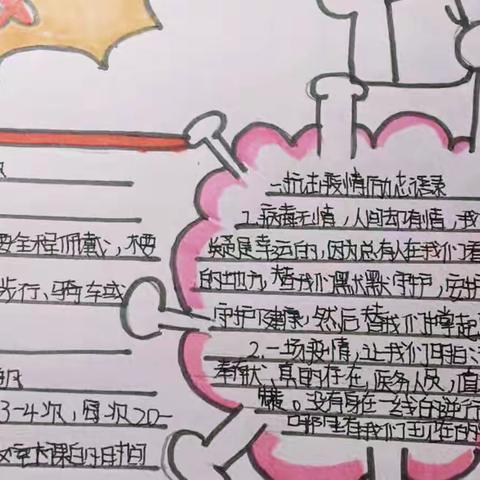 要全程佩戴,
步行、骑车或
3-4次,每次20-
二、抗击疫情励志语录
1.病毒无情,人间却有情,我
疑是幸运的,因为总有人在我们看
的地方,替我们默默守护,安
守护健康,然后替我们撑起
2.一场疫情,让我们明白:
奉献 真的存在,医务人员,值
赖。没有身在一线的逆行
哪里有我们现在的